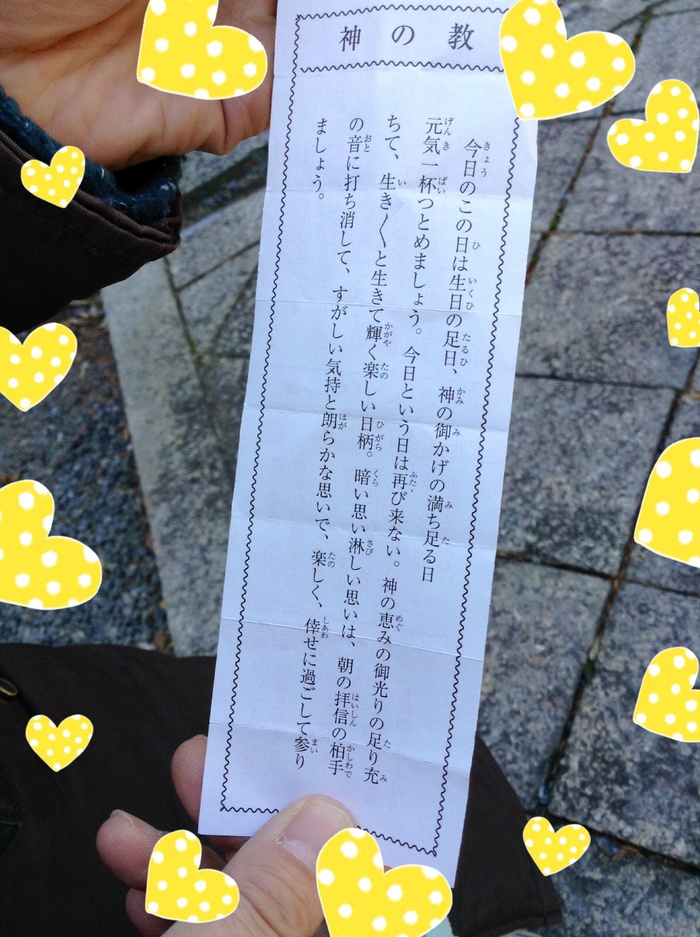 神の教
今日のこの日は生日の足日、神の御かげの満ち足る日
元気一杯つとめましょう。今日という日は再び来ない。神の恵みの御光りの足り充
ちて、生き〱と生きて輝く楽しい日柄。暗い思い淋しい思いは、朝の拝信の柏手
の音に打ち消して、すがしい気持と朗らかな思いで、楽しく、倖せに過ごして参り
ましょう。